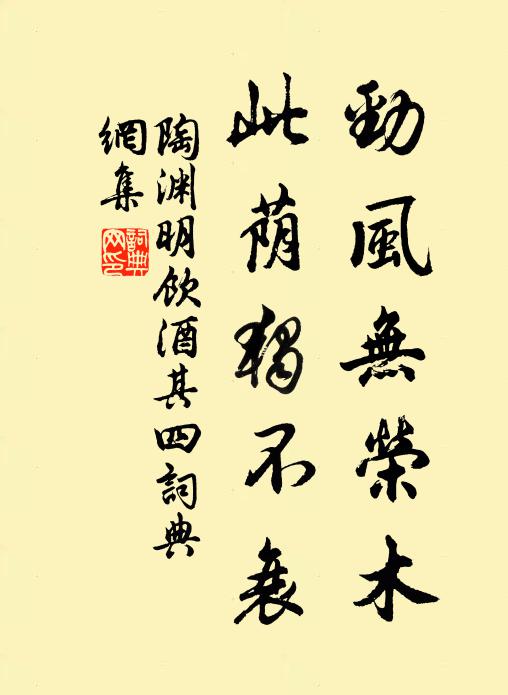 勁風無榮木
此荫獨不衰
陶渊明飲酒其四詞典
網集
詞典
网印